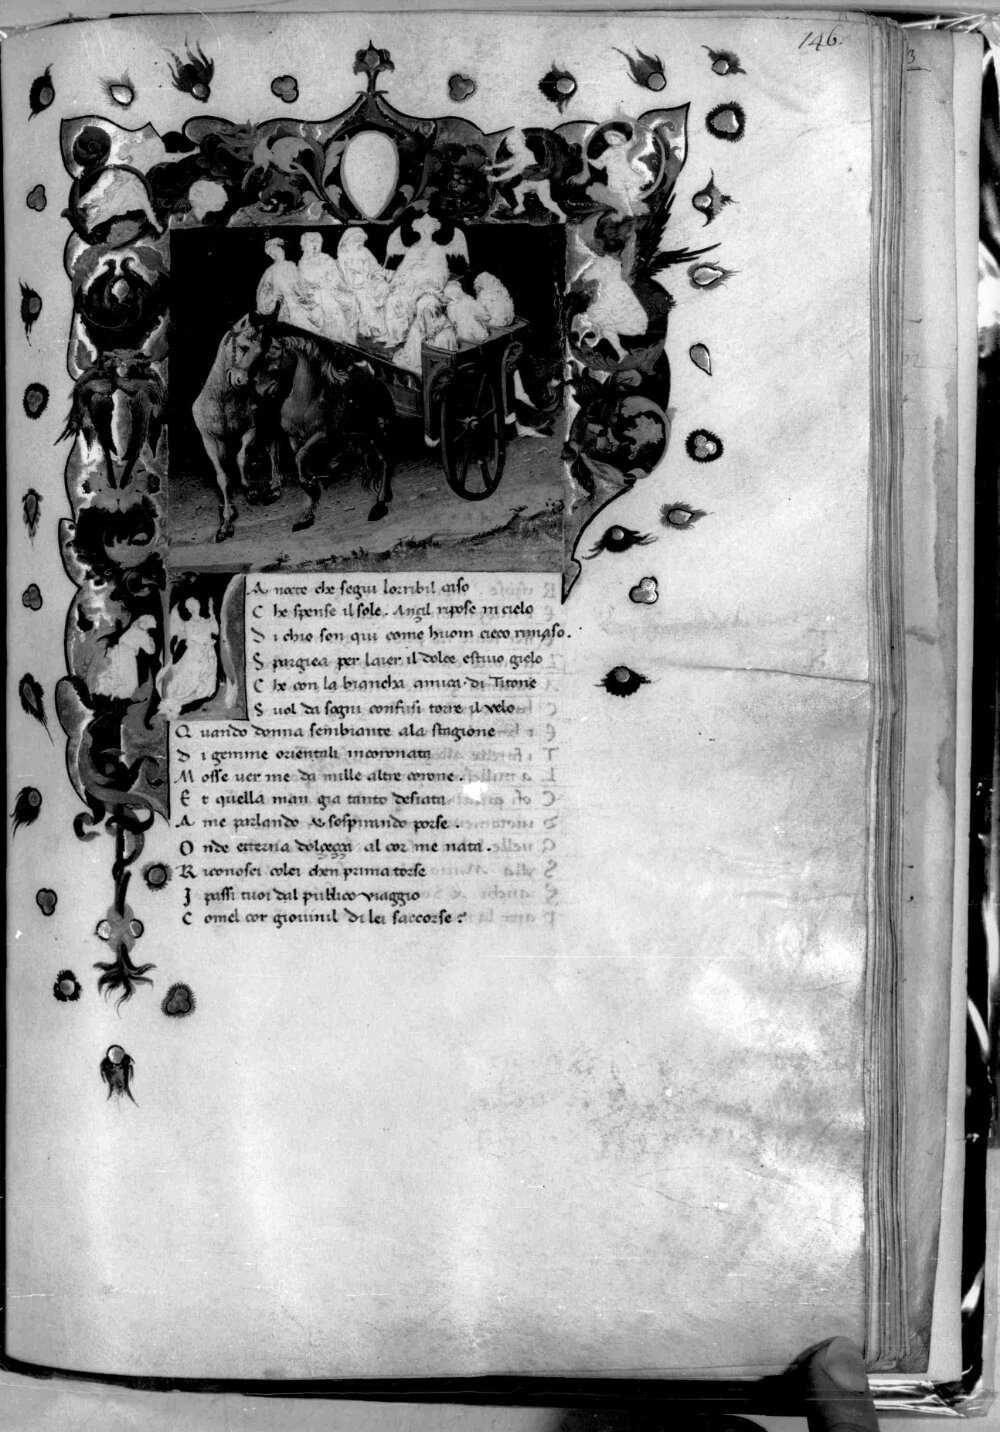 146.
3
L
A nocte che segui lorribil caso
C he spense il sole. Anzil ripose in cielo
D i chio son qui come huom cieco rimaso.
S pargiea per laier il dolce estiuo gielo
C he con la biancha amica di Titone
S uol da sogni confusi torre il velo
Q uando donna sembiante ala stagione
D i gemme orientali incoronata
M osse uer me da mille altre corone.
E t quella man gia tanto desiata
A me parlando & sospirando porse.
O nde etterna dolcezza al cor me nata.
R iconosci colei chen prima torse
I passi tuoi dal publico viaggio
C omel cor giouinil di lei saccorse: